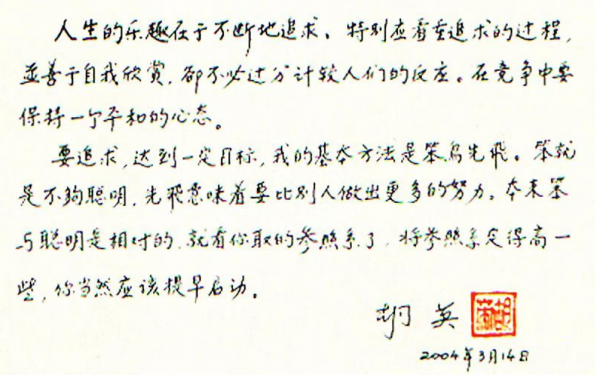 人生的乐趣在于不断地追求。特别应看重追求的过程，
並善于自我欣赏，卻不必过分计较人们的反应。在竞争中要
保持一个平和的心态。
要追求，达到一定目标，我的基本方法是笨鸟先飛。笨就
是不夠聪明，先飛意味着要比别人做出更多的努力。本来笨
与聪明是相对的，就看你取的参照系了，将参照系定得高一
些，你当然应该提早启动。
胡 英
2004年3月14日